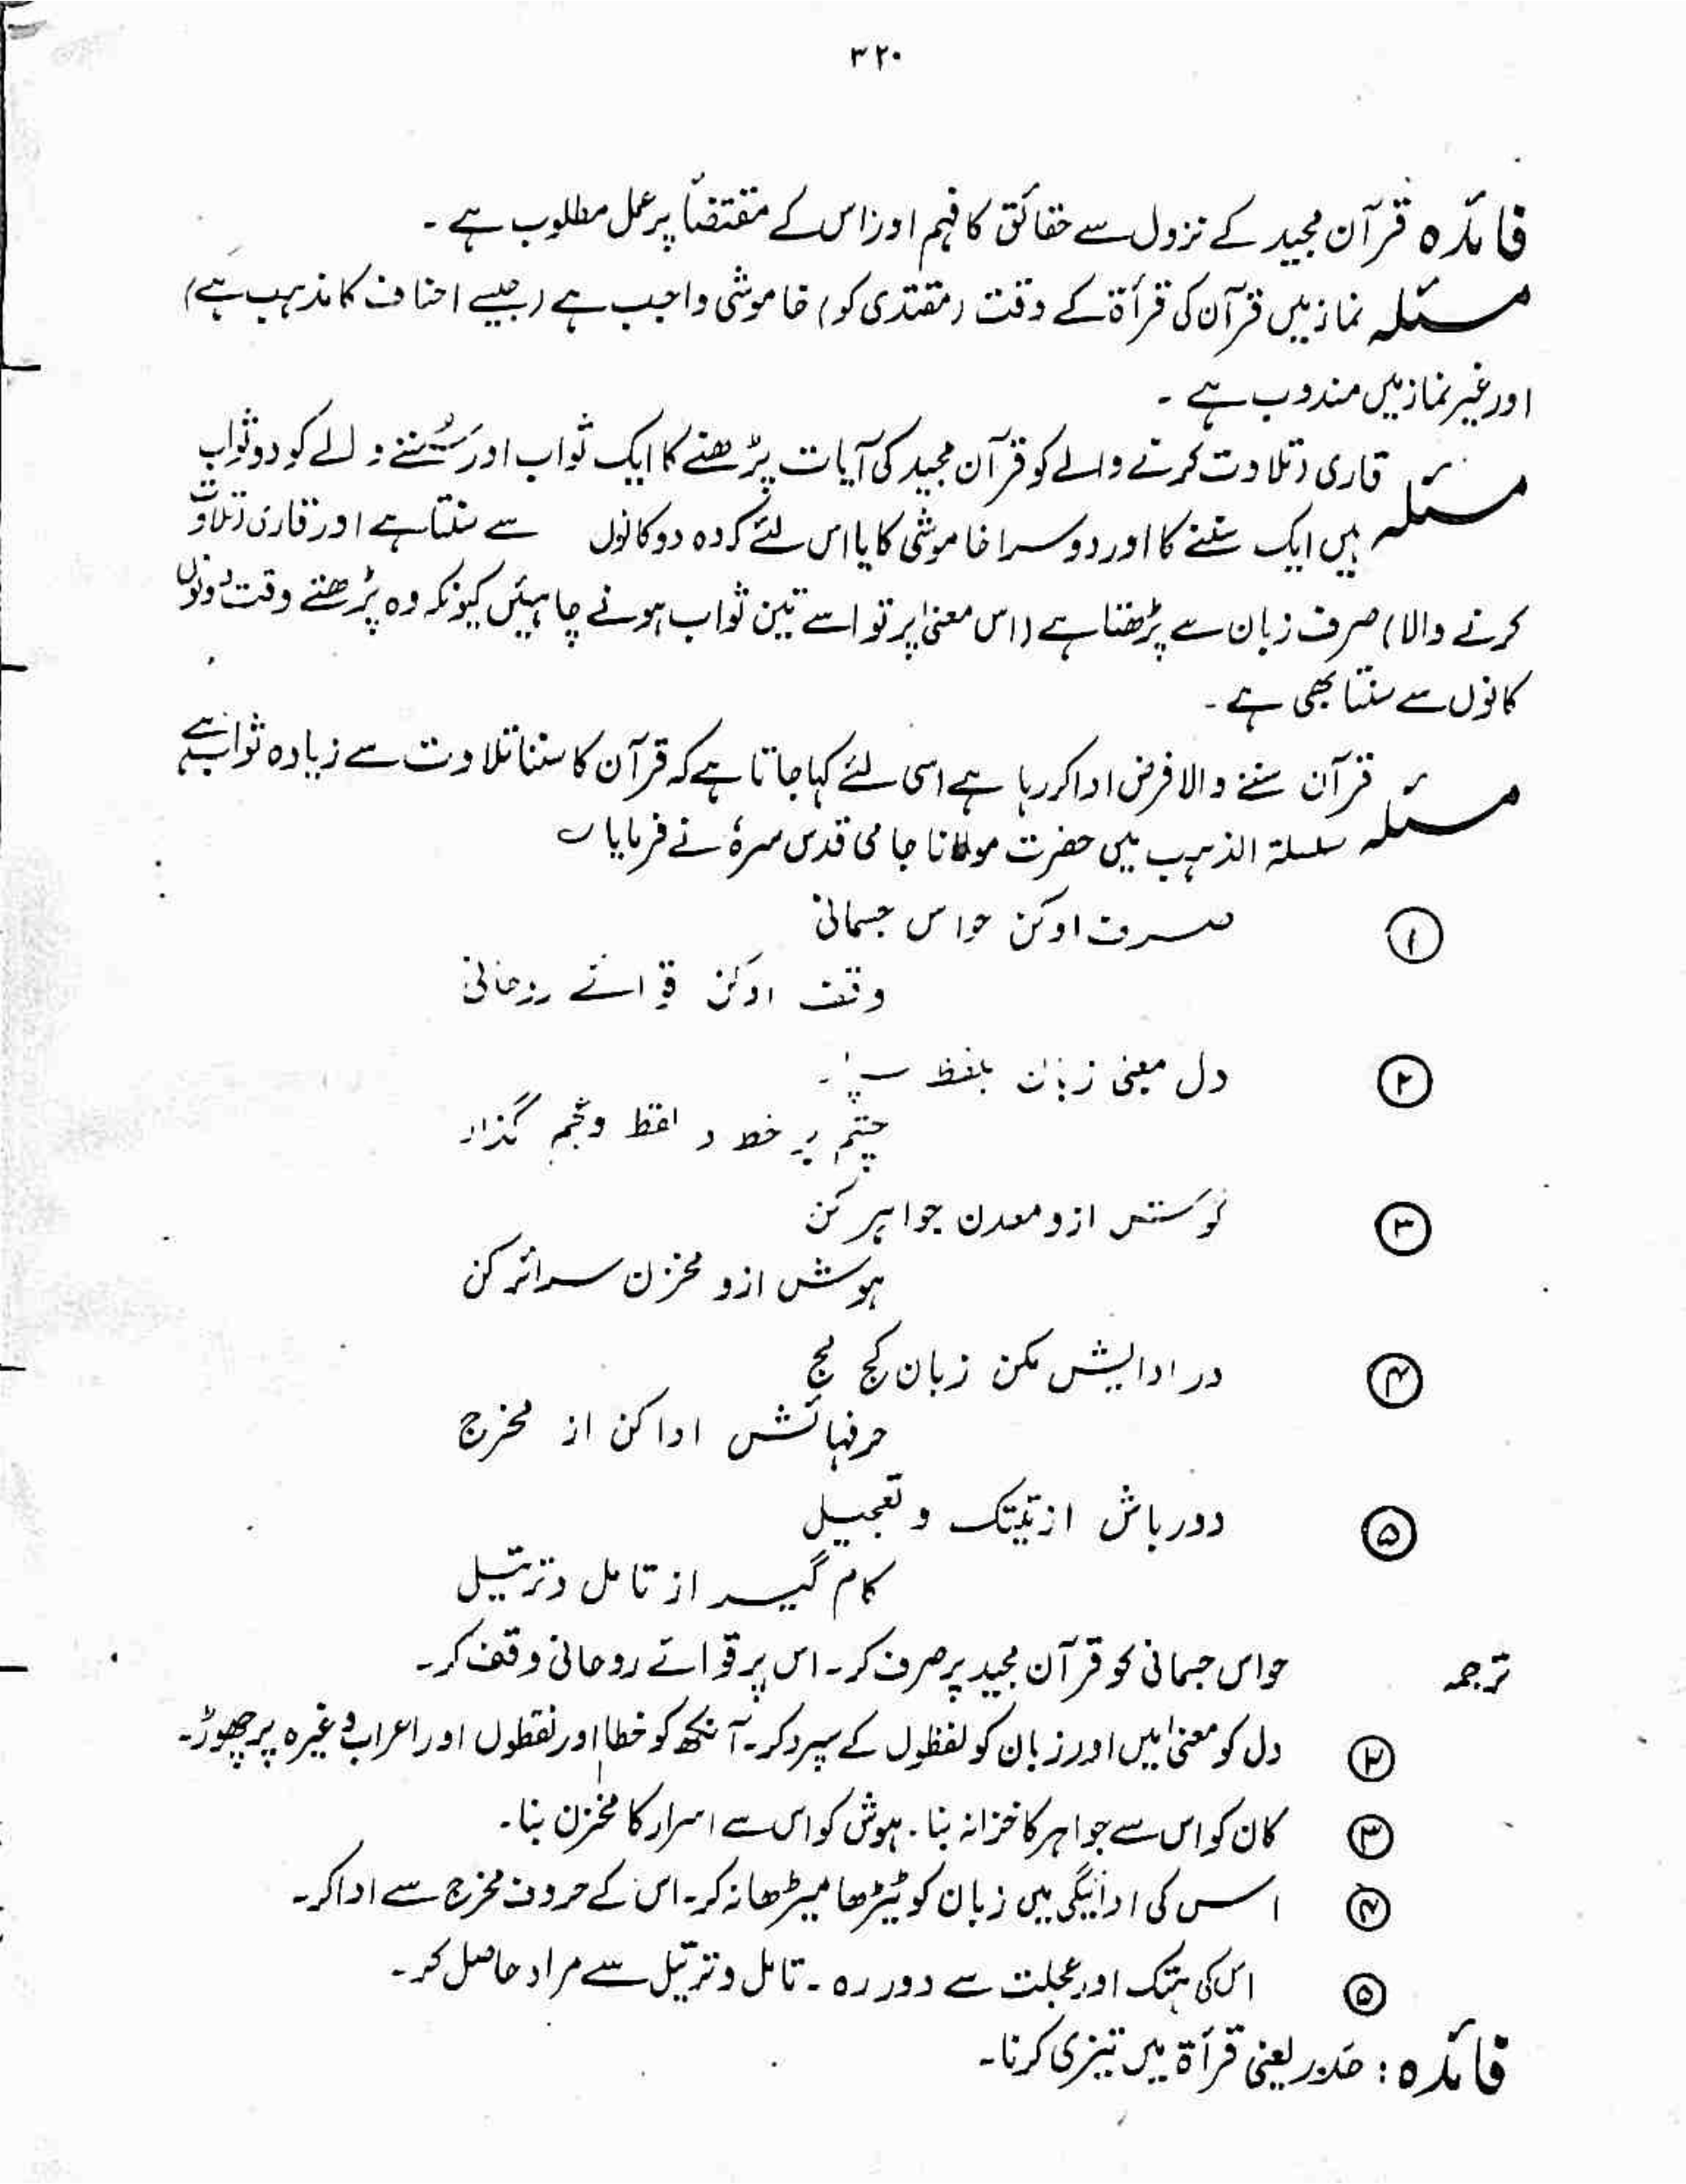 ۳۲۰
فائدہ قرآن مجید کے نزول سے حقائق کا فہم اور اس کے مقتضاً پر عمل مطلوب ہے ۔
مسئلہ نماز میں قرآن کی قرأۃ کے وقت (مقتدی کو) خاموشی واجب ہے (جیسے احناف کا مذہب ہے)
اور غیر نماز میں مندوب ہے ۔
مسئلہ قاری (تلاوت کرنے والے کو قرآن مجید کی آیات پڑھنے کا ایک ثواب اور سُننے والے کو دو ثواب
ہیں ایک سننے کا اور دوسرا خاموشی کا یا اس لئے کہ وہ دو کانوں سے سنتا ہے اور قاری (تلاوت
کرنے والا) صرف زبان سے پڑھتا ہے (اس معنیٰ پر تو اسے تین ثواب ہونے چاہئیں کیونکہ وہ پڑھتے وقت دونوں
کانوں سے سنتا بھی ہے ۔
مسئلہ قرآن سننے والا فرض ادا کر رہا ہے اسی لئے کہا جاتا ہے کہ قرآن کا سننا تلاوت سے زیادہ ثواب ہے
سلسلۃ الذہب میں حضرت مولانا جامی قدس سرہٗ نے فرمایا ؎
① صرف او کن حواس جسمانی
وقف او کن قوائے روحانی
② دل معنی زبان بلفظ سپار
چشم بر خط و نقط وعجم گذار
③ گوشش ازو معدن جواہر کن
ہوشش ازو مخزن سرائر کن
④ در ادایش مکن زبان کج مج
حرفہائش ادا کن از مخرج
⑤ دور باش از تہتک و تعجیل
کام گیر از تامل و ترتیل
ترجمہ حواس جسمانی کو قرآن مجید پر صرف کر ۔ اس پر قوائے روحانی وقف کر ۔
② دل کو معنیٰ میں اور زبان کو لفظوں کے سپرد کر ۔ آنکھ کو خطا اور نقطوں اور اعراب وغیرہ پر چھوڑ ۔
③ کان کو اس سے جواہر کا خزانہ بنا ۔ ہوش کو اس سے اسرار کا مخزن بنا ۔
④ اس کی ادائیگی میں زبان کو ٹیڑھا میڑھا نہ کر ۔ اس کے حروف مخرج سے ادا کر ۔
⑤ اس کی ہتک اور عجلت سے دور رہ ۔ تامل و ترتیل سے مراد حاصل کر ۔
فائدہ : حَدر یعنی قرأۃ میں تیزی کرنا ۔